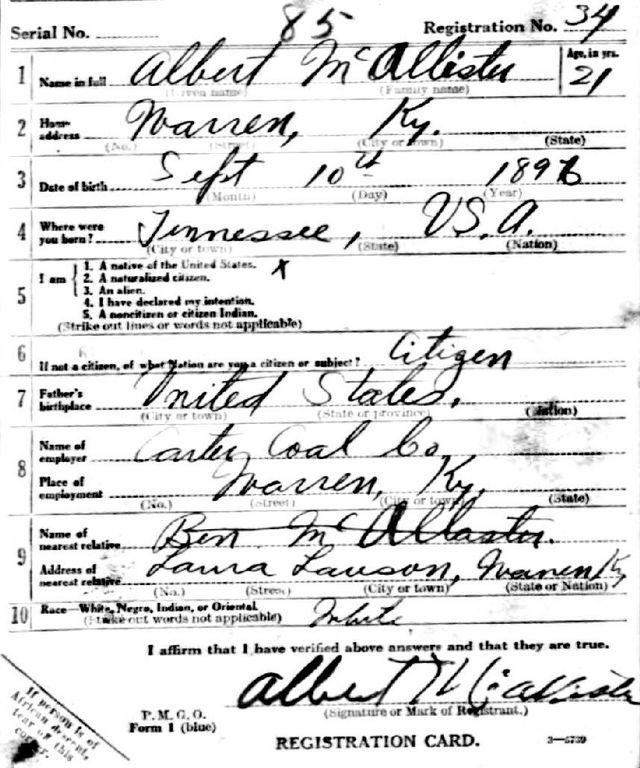 Serial No. 85 Registration No. 34
1 Name in full Albert McAllister Age, in yrs. 21
(Given name) (Family name)
2 Home address Warren, Ky.
(No.) (Street) (City or town) (State)
3 Date of birth Sept 10th 1896
(Month) (Day) (Year)
4 Where were you born? Tennessee, U.S.A.
(City or town) (State) (Nation)
5 I am
1. A native of the United States. x
2. A naturalized citizen.
3. An alien.
4. I have declared my intention.
5. A noncitizen or citizen Indian.
(Strike out lines or words not applicable)
6 If not a citizen, of what Nation are you a citizen or subject? Citizen
7 Father's birthplace United States.
(City or town) (State or province) (Nation)
8 Name of employer Carter Coal Co.,
Place of employment Warren, Ky,
(No.) (Street) (City or town) (State)
9 Name of nearest relative Ben McAllaster.
Address of nearest relative Laura Lawson, Warren Ky
(No.) (Street) (City or town) (State or Nation)
10 Race—White, Negro, Indian, or Oriental. White
(Strike out words not applicable)
I affirm that I have verified above answers and that they are true.
Albert McCallister
(Signature or Mark of Registrant.)
If person is of
African descent,
tear off this
corner.
P. M. G. O.
Form 1 (blue)
REGISTRATION CARD. 3—5739